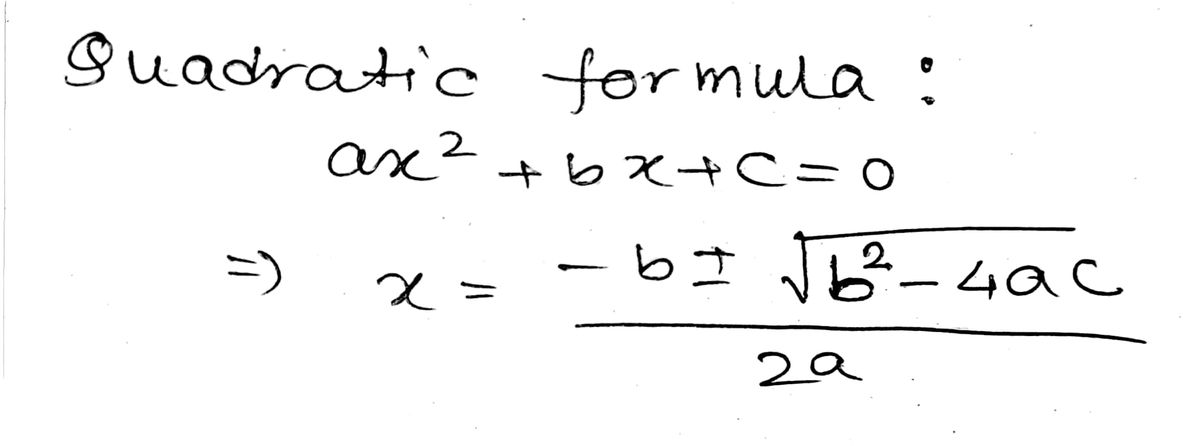 Quadratic formula :
ax² + bx + c = 0
⇒ x = -b ± √b² - 4ac / 2a